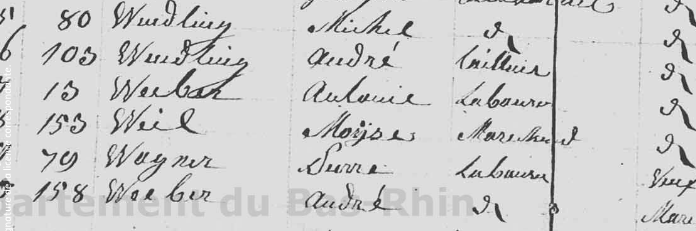 80 Wendling Michel d
103 Wendling André tailleur d
13 Weeber Antonie Laboureur d
153 Weil Moÿse Marchand d
79 Wagner Pierre Laboureur Veuf
158 Weeber André d
artement du Bas Rhin